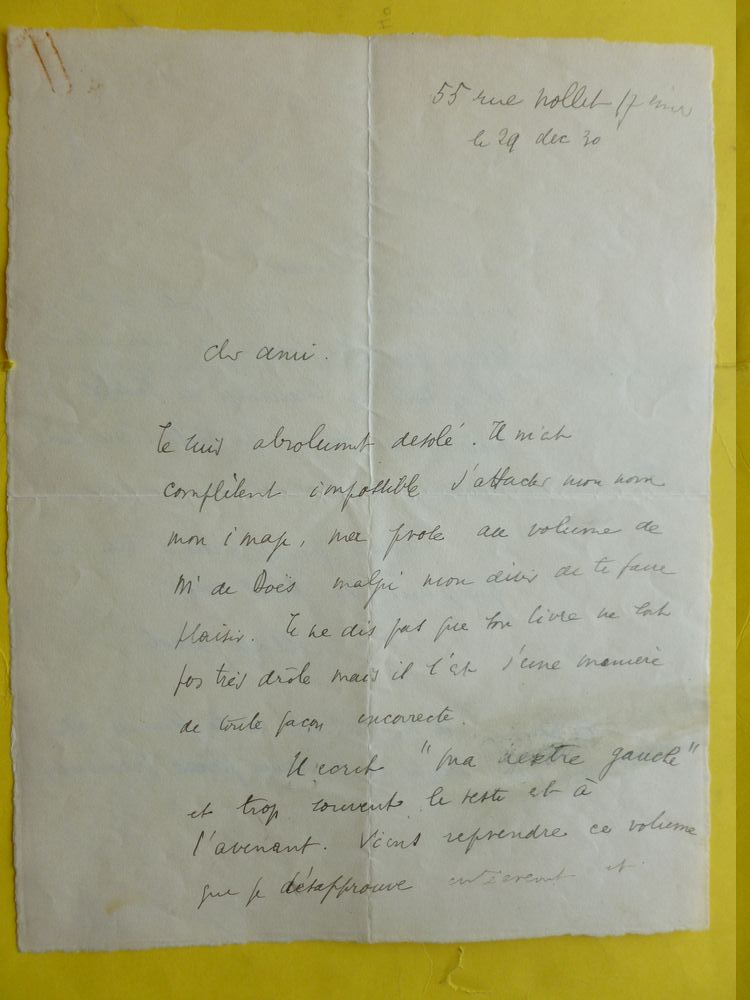 55 rue Nollet 17 ème
le 29 dec 30
cher ami.
Je suis absolument désolé. Il m'est
complètent impossible d'attacher mon nom
mon image, ma prose au volume de
Mr de Doës malgré mon désir de te faire
plaisir. Je ne dis pas que son livre ne soit
pas très drôle mais il l'est d'une manière
de toute façon incorrecte.
Il ecrit "ma dextre gauche"
et trop souvent le reste est à
l'avenant. Viens reprendre ce volume
que je désapprouve entièrement et